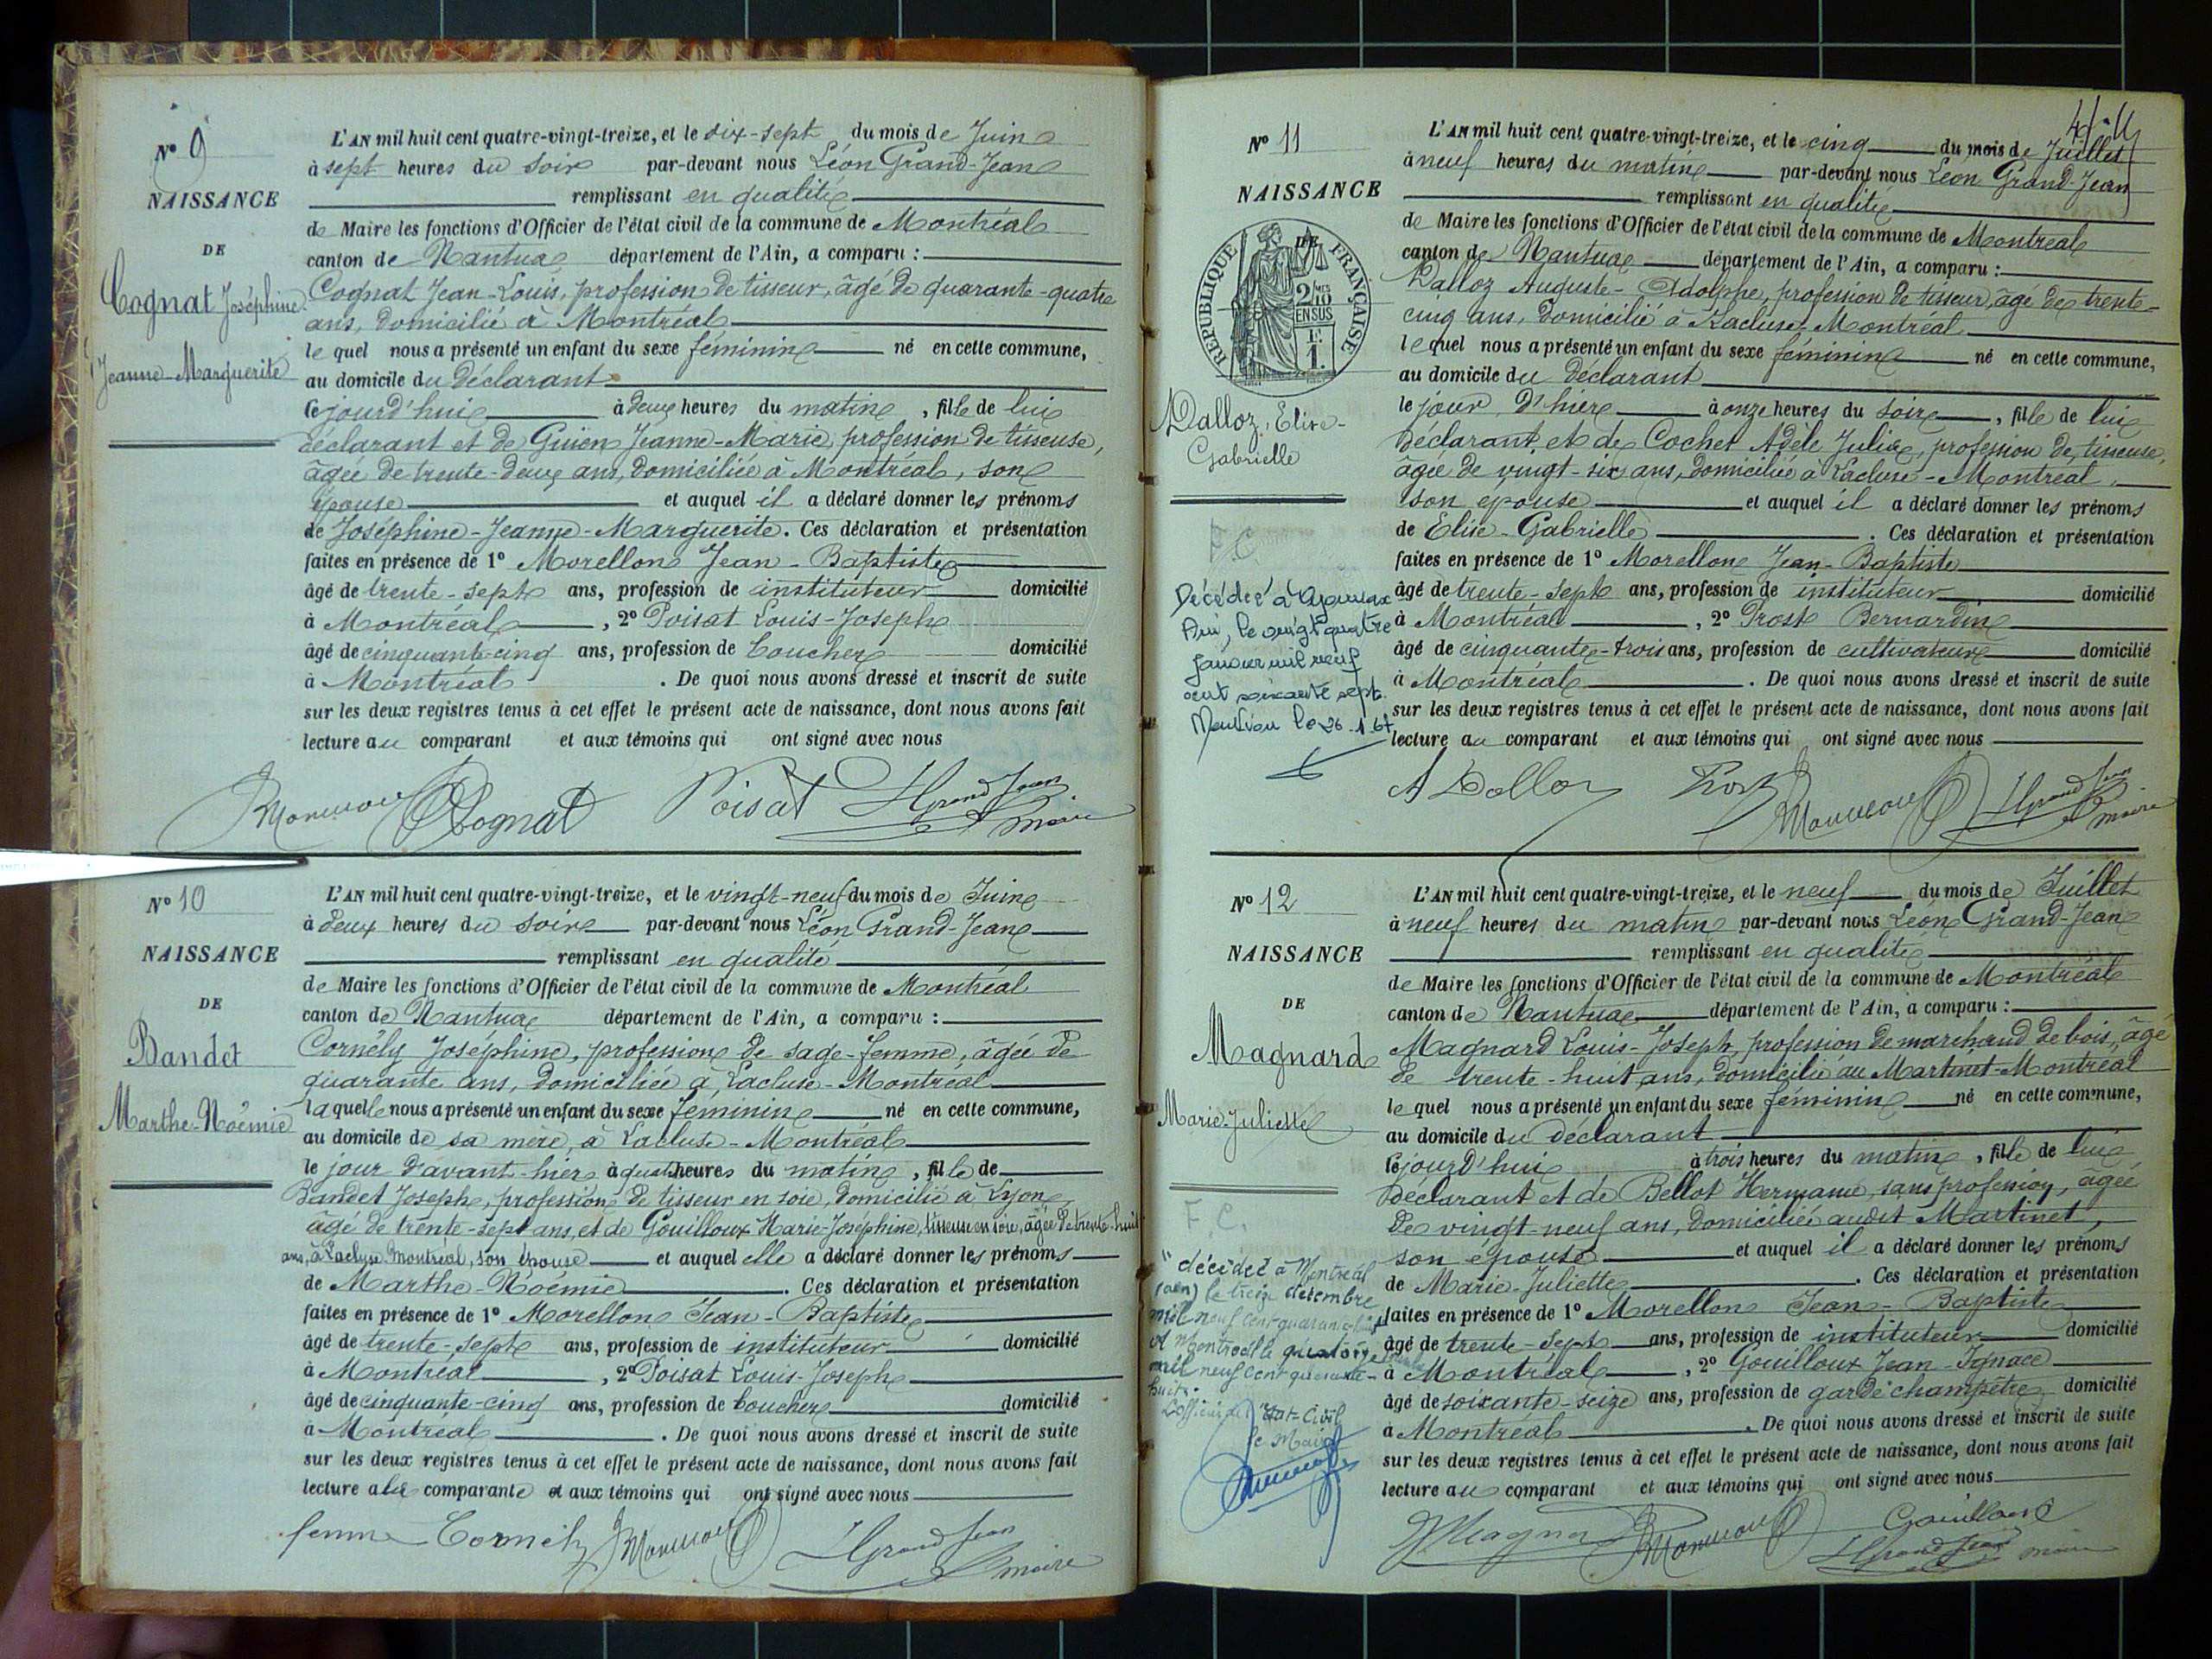 N° 9
NAISSANCE
DE
Cognat Joséphine
Jeanne-Marguerite
L'AN mil huit cent quatre-vingt-treize, et le dix-sept du mois de Juin
à sept heures du soir par-devant nous Léon Grand-Jean
remplissant en qualité
de Maire les fonctions d'Officier de l'état civil de la commune de Montréal
canton de Nantua département de l'Ain, a comparu :
Cognat Jean-Louis, profession de tisseur, âgé de quarante-quatre
ans, domicilié à Montréal
le quel nous a présenté un enfant du sexe féminin né en cette commune,
au domicile du déclarant
le jourd'hui à deux heures du matin, fille de lui
déclarant et de Guien Jeanne-Marie, profession de tisseuse,
âgée de trente-deux ans, domiciliée à Montréal, son
épouse et auquel il a déclaré donner les prénoms
de Joséphine-Jeanne-Marguerite. Ces déclaration et présentation
faites en présence de 1° Morellon Jean-Baptiste
âgé de trente-sept ans, profession de instituteur domicilié
à Montréal, 2° Poisat Louis-Joseph
âgé de cinquante-cinq ans, profession de boucher domicilié
à Montréal. De quoi nous avons dressé et inscrit de suite
sur les deux registres tenus à cet effet le présent acte de naissance, dont nous avons fait
lecture au comparant et aux témoins qui ont signé avec nous
Morellon Cognat Poisat LGrand Jean
maire
N° 10
NAISSANCE
DE
Bandet
Marthe-Noémie
L'AN mil huit cent quatre-vingt-treize, et le vingt-neuf du mois de Juin
à deux heures du soir par-devant nous Léon Grand-Jean
remplissant en qualité
de Maire les fonctions d'Officier de l'état civil de la commune de Montréal
canton de Nantua département de l'Ain, a comparu :
Cornély Joséphine, profession de sage-femme, âgée de
quarante ans, domiciliée à Lacluse-Montréal
laquelle nous a présenté un enfant du sexe féminin né en cette commune,
au domicile de sa mère, à Lacluse-Montréal
le jour d'avant-hier à quatre heures du matin, fille de
Bandet Joseph, profession de tisseur en soie, domicilié à Lyon,
âgé de trente-sept ans, et de Gouilloux Marie-Joséphine, tisseuse en soie, âgée de trente-huit
ans, à Lacluse-Montréal, son épouse et auquel elle a déclaré donner les prénoms
de Marthe-Noémie. Ces déclaration et présentation
faites en présence de 1° Morellon Jean-Baptiste
âgé de trente-sept ans, profession de instituteur domicilié
à Montréal, 2° Poisat Louis-Joseph
âgé de cinquante-cinq ans, profession de boucher domicilié
à Montréal. De quoi nous avons dressé et inscrit de suite
sur les deux registres tenus à cet effet le présent acte de naissance, dont nous avons fait
lecture à la comparante et aux témoins qui ont signé avec nous
femme Cornély Morellon LGrand Jean
maire
N° 11
NAISSANCE
DE
REPUBLIQUE FRANÇAISE
2/10
EN SUS
1F.
Dalloz, Elise-
Gabrielle
F.C.
Décédée à Oyonnax
Ain, le vingt quatre
janvier mil neuf
cent soixante sept.
Mention le 26-1-67
L'AN mil huit cent quatre-vingt-treize, et le cinq du mois de Juillet
à neuf heures du matin par-devant nous Léon Grand-Jean
remplissant en qualité
de Maire les fonctions d'Officier de l'état civil de la commune de Montréal
canton de Nantua département de l'Ain, a comparu :
Dalloz Auguste-Adolphe, profession de tisseur, âgé de trente-
cinq ans, domicilié à Lacluse-Montréal
le quel nous a présenté un enfant du sexe féminin né en cette commune,
au domicile du déclarant
le jour d'hier à onze heures du soir, fille de lui
déclarant et de Cochet Adèle Julie, profession de tisseuse,
âgée de vingt-six ans, domiciliée à Lacluse-Montréal,
son épouse et auquel il a déclaré donner les prénoms
de Elise-Gabrielle. Ces déclaration et présentation
faites en présence de 1° Morellon Jean-Baptiste
âgé de trente-sept ans, profession de instituteur domicilié
à Montréal, 2° Prost Bernardin
âgé de cinquante-trois ans, profession de cultivateur domicilié
à Montréal. De quoi nous avons dressé et inscrit de suite
sur les deux registres tenus à cet effet le présent acte de naissance, dont nous avons fait
lecture au comparant et aux témoins qui ont signé avec nous
A Dalloz Prost Morellon LGrand Jean
maire
N° 12
NAISSANCE
DE
Magnard
Marie-Juliette
F.C.
"décédée à Montréal
(ain) le treize décembre
mil neuf cent quarante-huit
A Montréal le quatorze
mil neuf cent quarante-
huit.
L'officier de l'Etat-Civil
le Maire
L'AN mil huit cent quatre-vingt-treize, et le neuf du mois de Juillet
à neuf heures du matin par-devant nous Léon Grand-Jean
remplissant en qualité
de Maire les fonctions d'Officier de l'état civil de la commune de Montréal
canton de Nantua département de l'Ain, a comparu :
Magnard Louis-Joseph, profession de marchand de bois, âgé
de trente-huit ans, domicilié au Martinet-Montréal
le quel nous a présenté un enfant du sexe féminin né en cette commune,
au domicile du déclarant
le jourd'hui à trois heures du matin, fille de lui
déclarant et de Bellot Hermanie, sans profession, âgée
de vingt-neuf ans, domiciliée audit Martinet,
son épouse et auquel il a déclaré donner les prénoms
de Marie-Juliette. Ces déclaration et présentation
faites en présence de 1° Morellon Jean-Baptiste
âgé de trente-sept ans, profession de instituteur domicilié
à Montréal, 2° Gouilloux Jean-Ignace
âgé de soixante-seize ans, profession de garde champêtre domicilié
à Montréal. De quoi nous avons dressé et inscrit de suite
sur les deux registres tenus à cet effet le présent acte de naissance, dont nous avons fait
lecture au comparant et aux témoins qui ont signé avec nous
Magnard Morellon Gouilloux
LGrand Jean maire